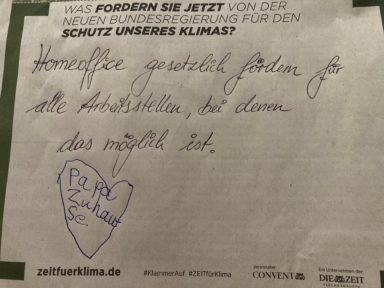 WAS FORDERN SIE JETZT VON DER
NEUEN BUNDESREGIERUNG FÜR DEN
SCHUTZ UNSERES KLIMAS?
Homeoffice gesetzlich fördern für
alle Arbeitsstellen, bei denen
das möglich ist.
Papa
Zuhaus
se.
zeitfuerklima.de
#KlammerAuf #ZEITfürKlima
Veranstalter
CONVENT
Ein Unternehmen der
DIE ZEIT
VERLAGSGRUPPE